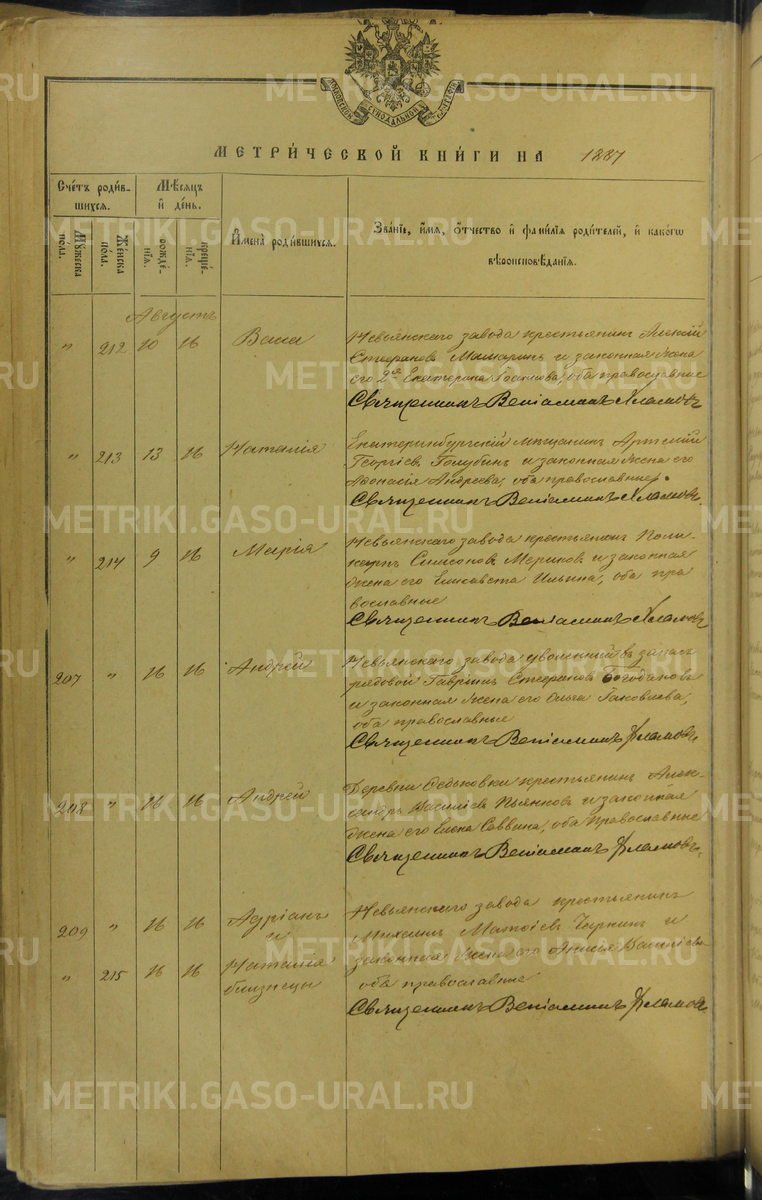 МЕТРИ́ЧЕСКОЙ КНИ́ГИ НА 1887
Сче́тъ роди́в-
шихся.
Мѣ́сяцъ
и҆ де́нь.
И҆мена̀ роди́вшихся.
Зва́нїе, и҆́мя, о҆́тчество и҆ фами́лїя роди́телей, и҆ како́гѡ
вѣроисповѣ́данїя.
Му́жеска
пола.
Же́нска
по́ла.
рожде́-
нїя.
креще́-
нїя.
Августъ
" 212 10 16 Васса
Невьянскаго завода крестьянинъ Алексій
Стефановъ и законная жена
его 2ая Екатерина, оба православные
Священникъ Веніаминъ Хламовъ
" 213 13 16 Наталія
Екатеринбургскій мѣщанинъ Артемій
Георгіевъ Голубинъ и законная жена его
Афонасія Андреева, оба православные.
Священникъ Веніаминъ Хламовъ
" 214 9 16 Марія
Невьянскаго завода крестьянинъ Поли-
карпъ Симоновъ Мериновъ и законная
жена его Елисавета Ильина, оба пра
вославные
Священникъ Веніаминъ Хламовъ
207 " 16 16 Андрей
Невьянскаго завода уволенный въ запасъ
рядовой Гавріилъ Стефановъ
и законная жена его Ольга Іаковлева,
оба православные
Священникъ Веніаминъ Хламовъ
208 " 16 16 Андрей
Деревни Федьковки крестьянинъ Алек-
сандръ Василіевъ Пьянковъ и законная
жена его Елена Саввина, оба православные
Священникъ Веніаминъ Хламовъ
209 " 16 16 Адріанъ
и
" 215 16 16 Наталія
близнецы
Невьянскаго завода крестьянинъ
Михаилъ Матѳіевъ и
законная жена его Анисья Василіева
оба православные
Священникъ Веніаминъ Хламовъ
METRIKI.GASO-URAL.RU